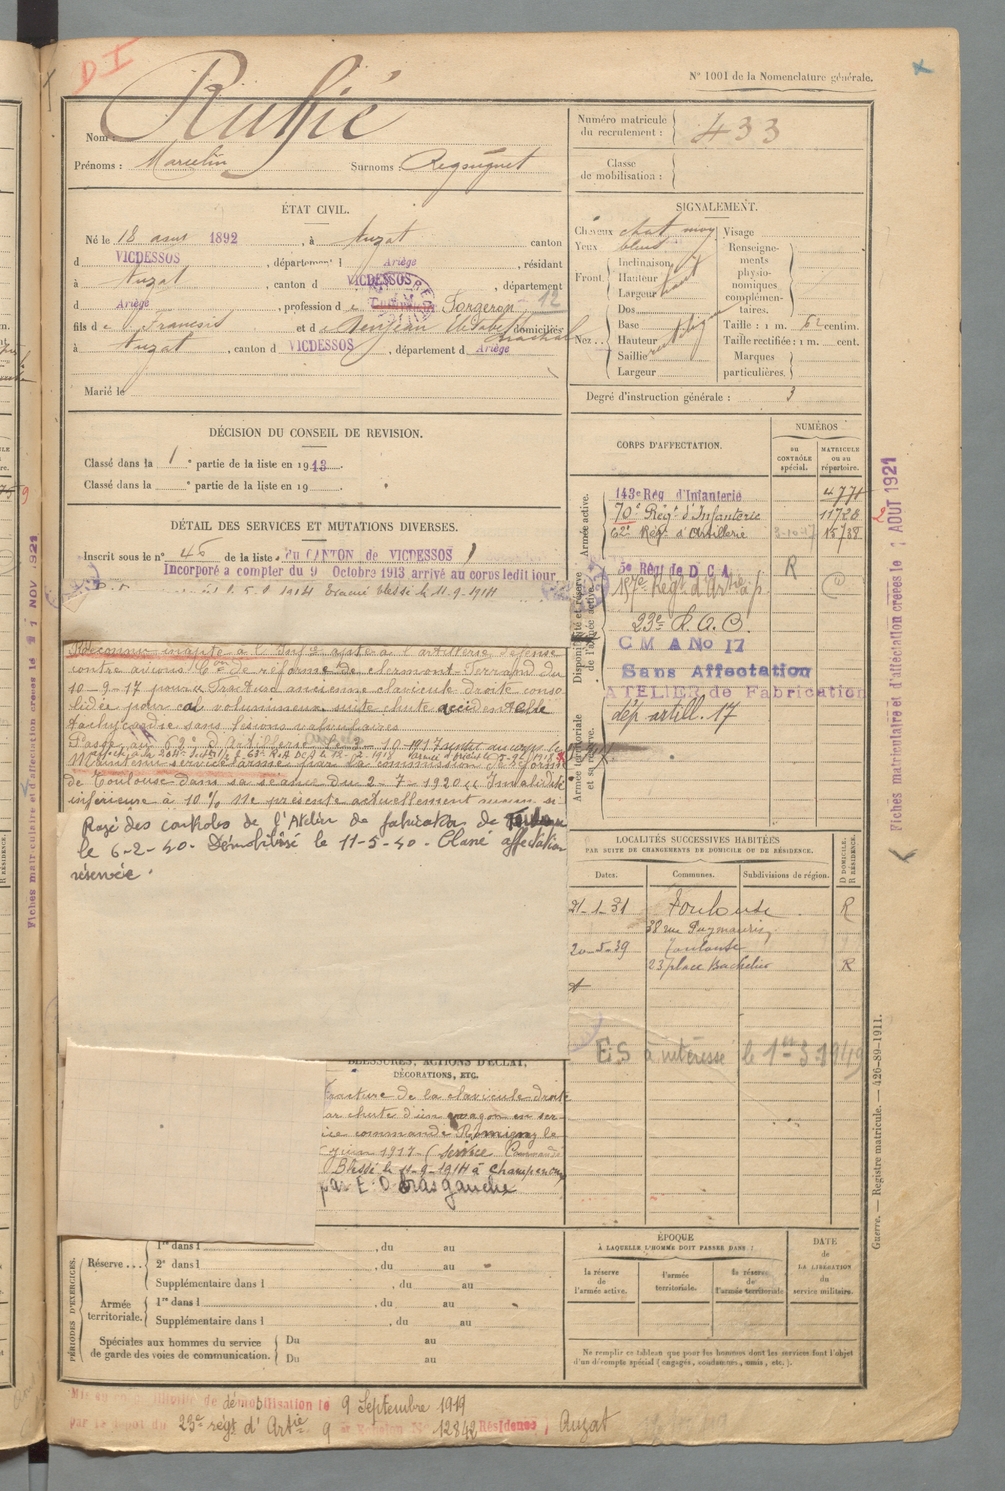 DI
N° 1001 de la Nomenclature générale.
Nom : Ruffié
Prénoms : Marcelin Surnoms :
Numéro matricule du recrutement : 433
Classe de mobilisation :
ÉTAT CIVIL.
Né le 18 1892, à Auzat canton
d VICDESSOS, département d Ariège, résidant
à Auzat, canton d VICDESSOS, département
d Ariège, profession d e Forgeron 12
fils de François et de Élisabeth domiciliés
à Auzat, canton d VICDESSOS, département d Ariège
Marié le
SIGNALEMENT.
Cheveux chat. moy
Yeux bleus
Front Inclinaison
Hauteur
Largeur haut
Nez Dos
Base
Hauteur
Saillie
Largeur
Visage
Renseignements physionomiques complémentaires.
Taille : 1 m. 62 centim.
Taille rectifiée : 1 m. cent.
Marques particulières.
Degré d'instruction générale : 3
DÉCISION DU CONSEIL DE REVISION.
Classé dans la 1e partie de la liste en 1913
Classé dans la e partie de la liste en 19
DÉTAIL DES SERVICES ET MUTATIONS DIVERSES.
Inscrit sous le n° 46 de la liste du CANTON de VICDESSOS
Incorporé à compter du 9 Octobre 1913 arrivé au corps ledit jour
1914 Evacué blessé le 11.9.1914
Reconnu inapte à l'Inf^ie apte à l'artillerie défense
contre avions C^on de réforme de Clermont-Ferrand du
10-9-17 pour « Fracture ancienne clavicule droite conso
lidée pour cal volumineux suite chute accidentelle
tachycardie sans lésions valvulaires
Passé au 62e d'Artillerie
Maintenu service armé par la commission de réforme
de Toulouse dans sa séance du 2-7-1920 « Invalidité
inférieure à 10 % Ne présente actuellement aucun si
Rayé des contrôles de l'Atelier de fabrication de Toulouse
le 6-2-40. Démobilisé le 11-5-40. Classé affectation
réservée.
CORPS D'AFFECTATION.
NUMÉROS
au CONTRÔLE spécial.
MATRICULE ou au répertoire.
Armée active.
143e Rég d'Infanterie 4771
70e Rég^t d'Infanterie 11728
62e Rég^t d'Artillerie
Disponibilité et réserve de l'armée active.
5e Rég^t de D C A R
157e Rég^t d'Art^ie à p.
23e R.A.C.
C M A No 17
Sans Affectation
ATELIER de Fabrication
dép artill. 17
Armée territoriale et sa réserve.
LOCALITÉS SUCCESSIVES HABITÉES
PAR SUITE DE CHANGEMENTS DE DOMICILE OU DE RÉSIDENCE.
Dates. Communes. Subdivisions de région. D DOMICILE. R RÉSIDENCE.
21-1-31 Toulouse R
38 rue Puymaurin
20-5-39 Toulouse
23 place Bachelier R
ES à intéressé le 1er-3-1949
BLESSURES, ACTIONS D'ÉCLAT,
DÉCORATIONS, ETC.
Fracture de la clavicule droite
par chute d'un wagon en ser-
vice commandé Romigny le
juin 1917 (Service Commandé
Blessé le 11-9-1914 à
par E. O bras gauche
PÉRIODES D'EXERCICES.
Réserve ... 1re dans l , du au
2e dans l , du au
Supplémentaire dans l , du au
Armée territoriale. 1re dans l , du au
Supplémentaire dans l , du au
Spéciales aux hommes du service de garde des voies de communication. Du au
Du au
ÉPOQUE
À LAQUELLE L'HOMME DOIT PASSER DANS :
la réserve de l'armée active.
l'armée territoriale.
la réserve de l'armée territoriale
DATE
de
LA LIBÉRATION
du
service militaire.
Ne remplir ce tableau que pour les hommes dont les services font l'objet
d'un décompte spécial (engagés, condamnés, omis, etc.).
Mis en congé illimité de démobilisation le 9 Septembre 1919
par le dépôt du 23e rég^t d'Art^ie 9e Échelon N° 12842 Résidence, Auzat
Fiches matriculaire et d'affectation créées le 2 AOUT 1921
Guerre. — Registre matricule. — 426-89-1911.
Fiches matriculaire et d'affectation créées le 21 NOV 1921